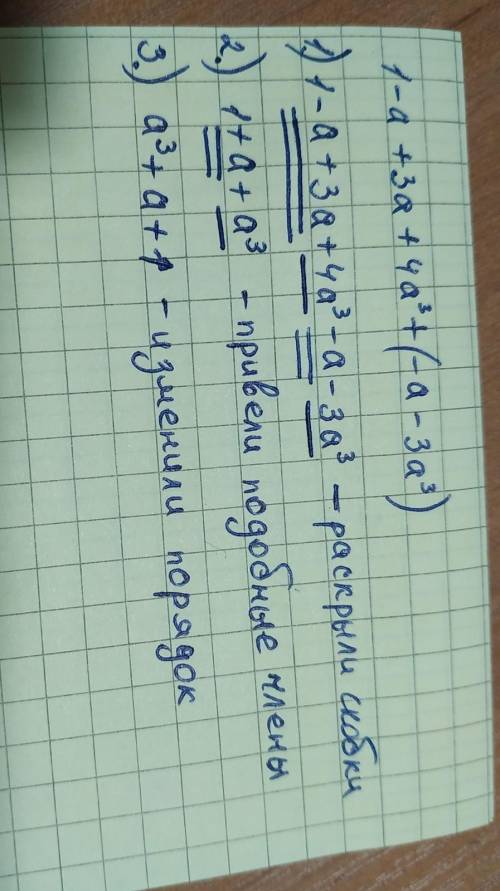 1-a+3a+4a³+(-a-3a³)
1.) 1-a+3a+4a³-a-3a³ - раскрыли скобки
2.) 1+a+a³ - привели подобные члены
3.) a³+a+1 - изменили порядок